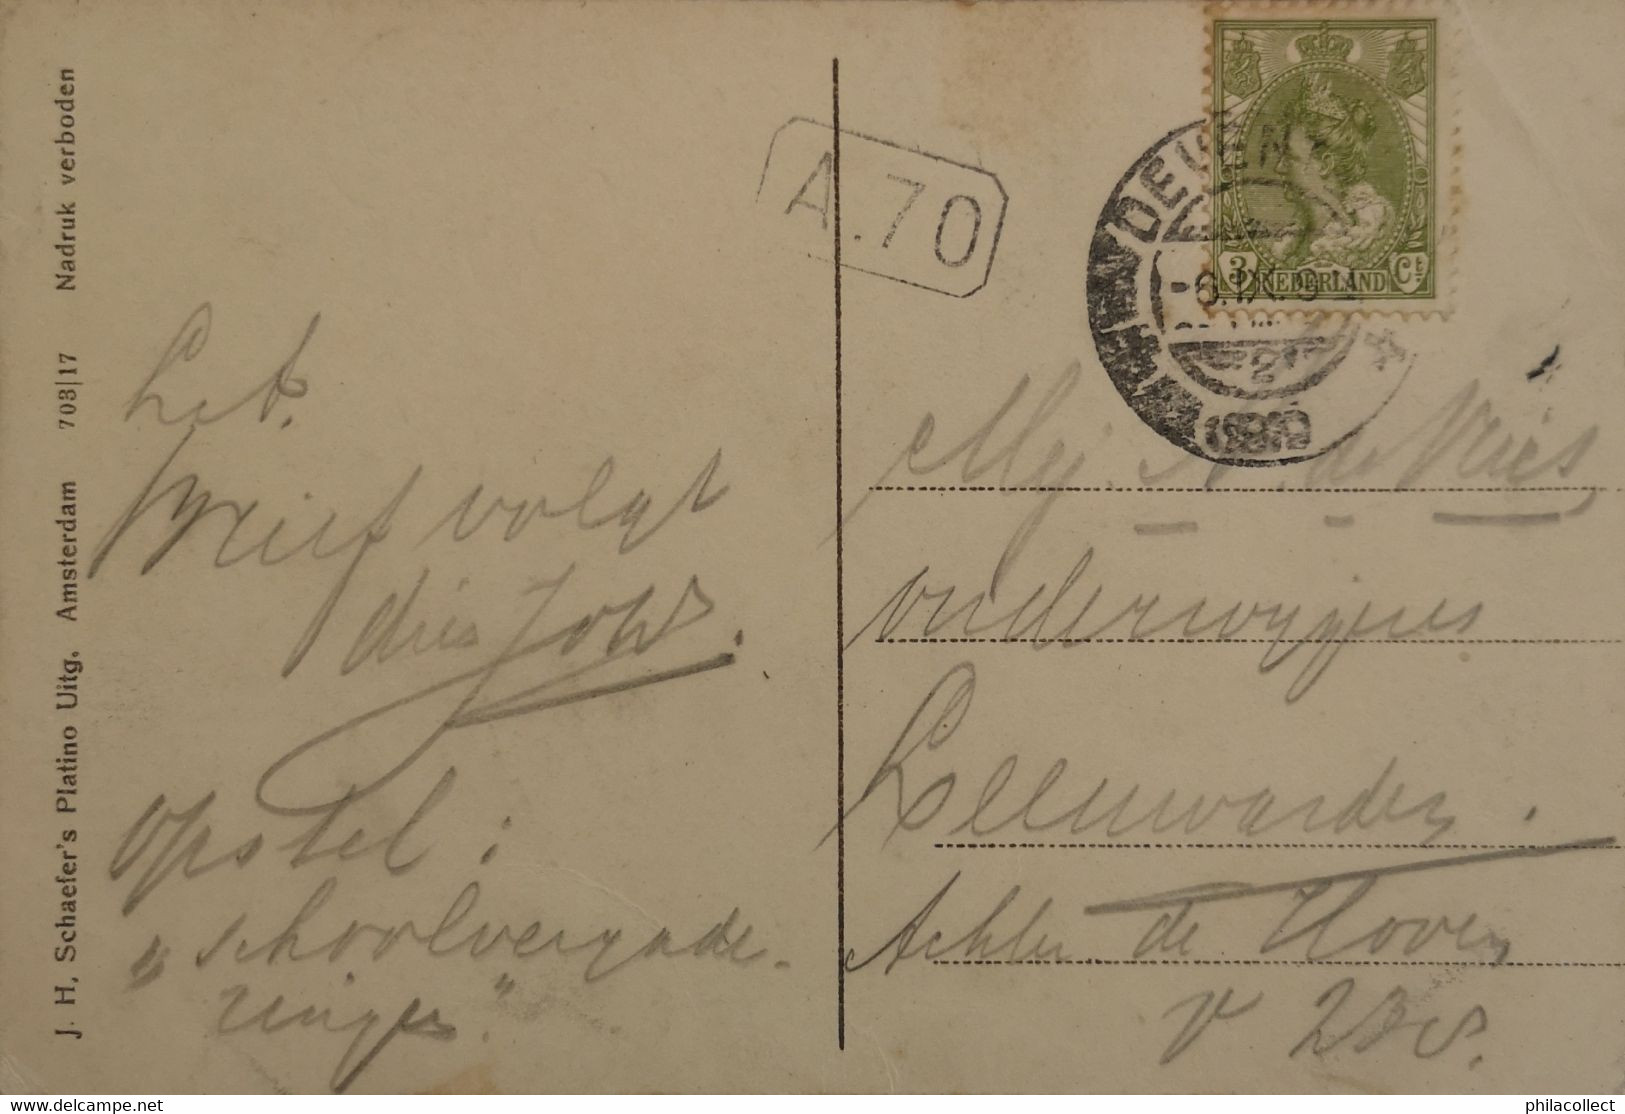 J. H. Schaefer's Platino Uitg. Amsterdam 703|17 Nadruk verboden
A.70
DEVEN
-6.IX.9
2
3 NEDERLAND Ct
L. & A.
Brief volgt
dus Joh.
Opstel:
„schoolvergade-
ringen."
Mej. A. de Vries,
onderwijzeres
Leeuwarden.
Achter de Hoven
philacollect